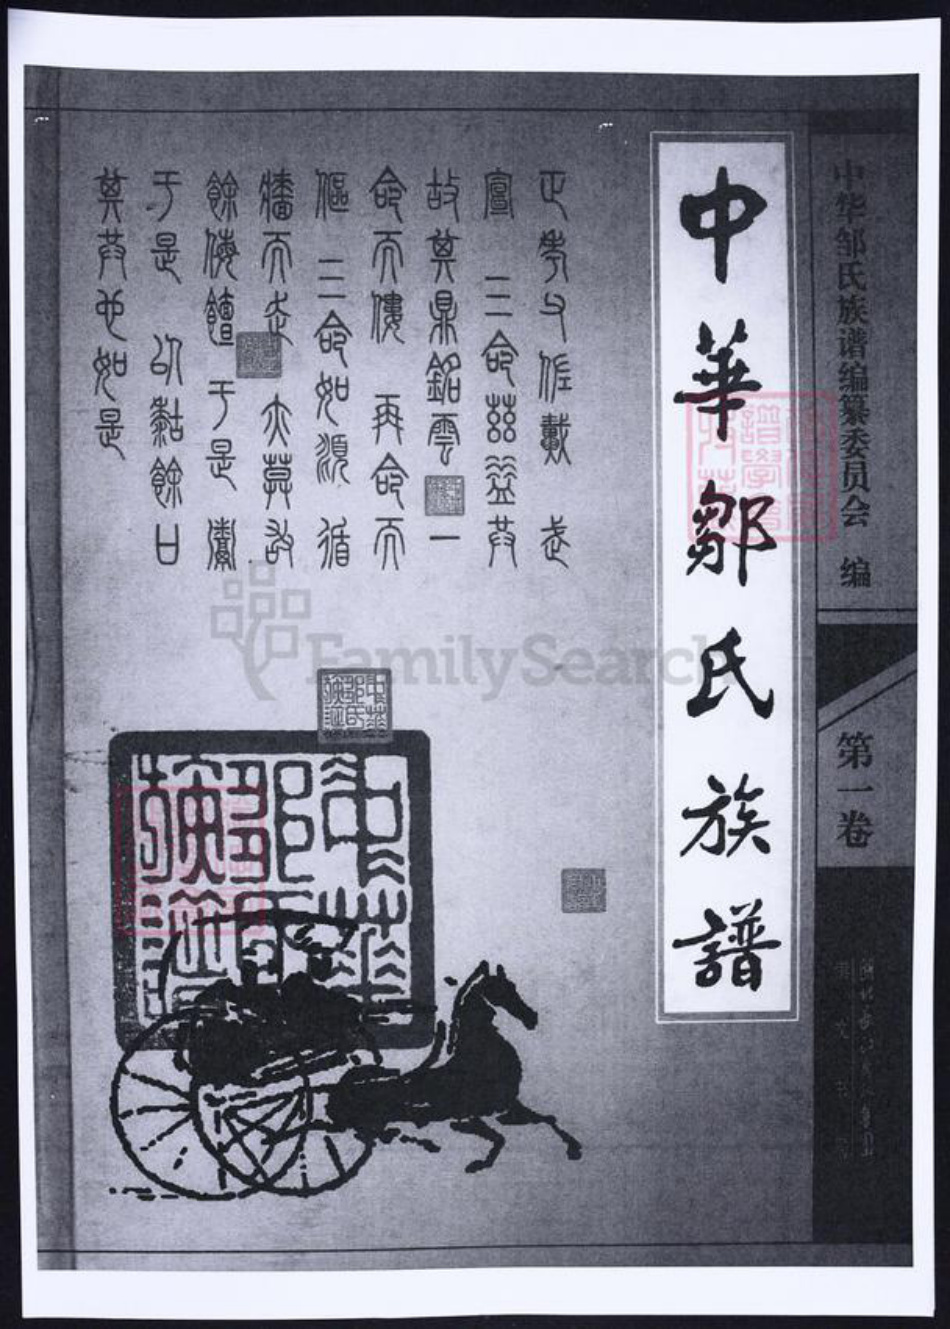 中華鄒氏族譜
正考父佐戴 武
宣 三命茲益共
故其鼎銘雲 一
命而僂 再命而
傴 三命如 循
牆而走 亦莫敢
餘侮饘 于是 鬻
于是 以餘口
其共也如是
中华邹氏族谱编纂委员会 编
第一卷
中華鄒氏族譜
FamilySearch